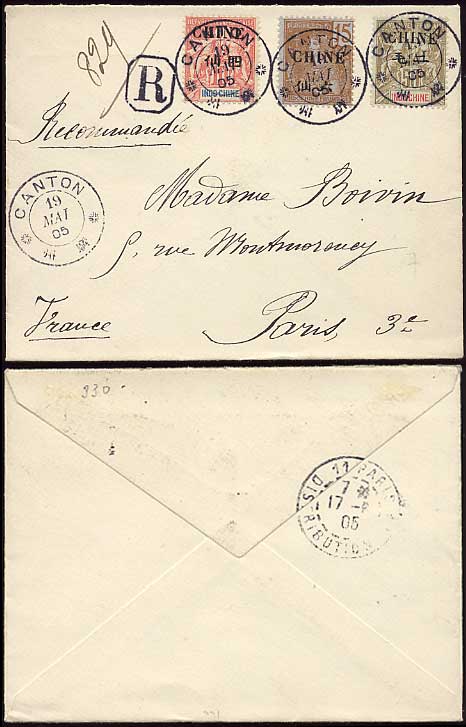 829
R
CHINE
INDO-CHINE
CANTON
19
MAI
05
15
CHINE
MAI
05
CHINE
INDO-CHINE
CANTON
05
Recommandée
CANTON
19
MAI
05
Madame Boivin
5, rue Montmorency
France
Paris, 3e
330
PARIS 11
7
17 -6
05
DISTRIBUTION